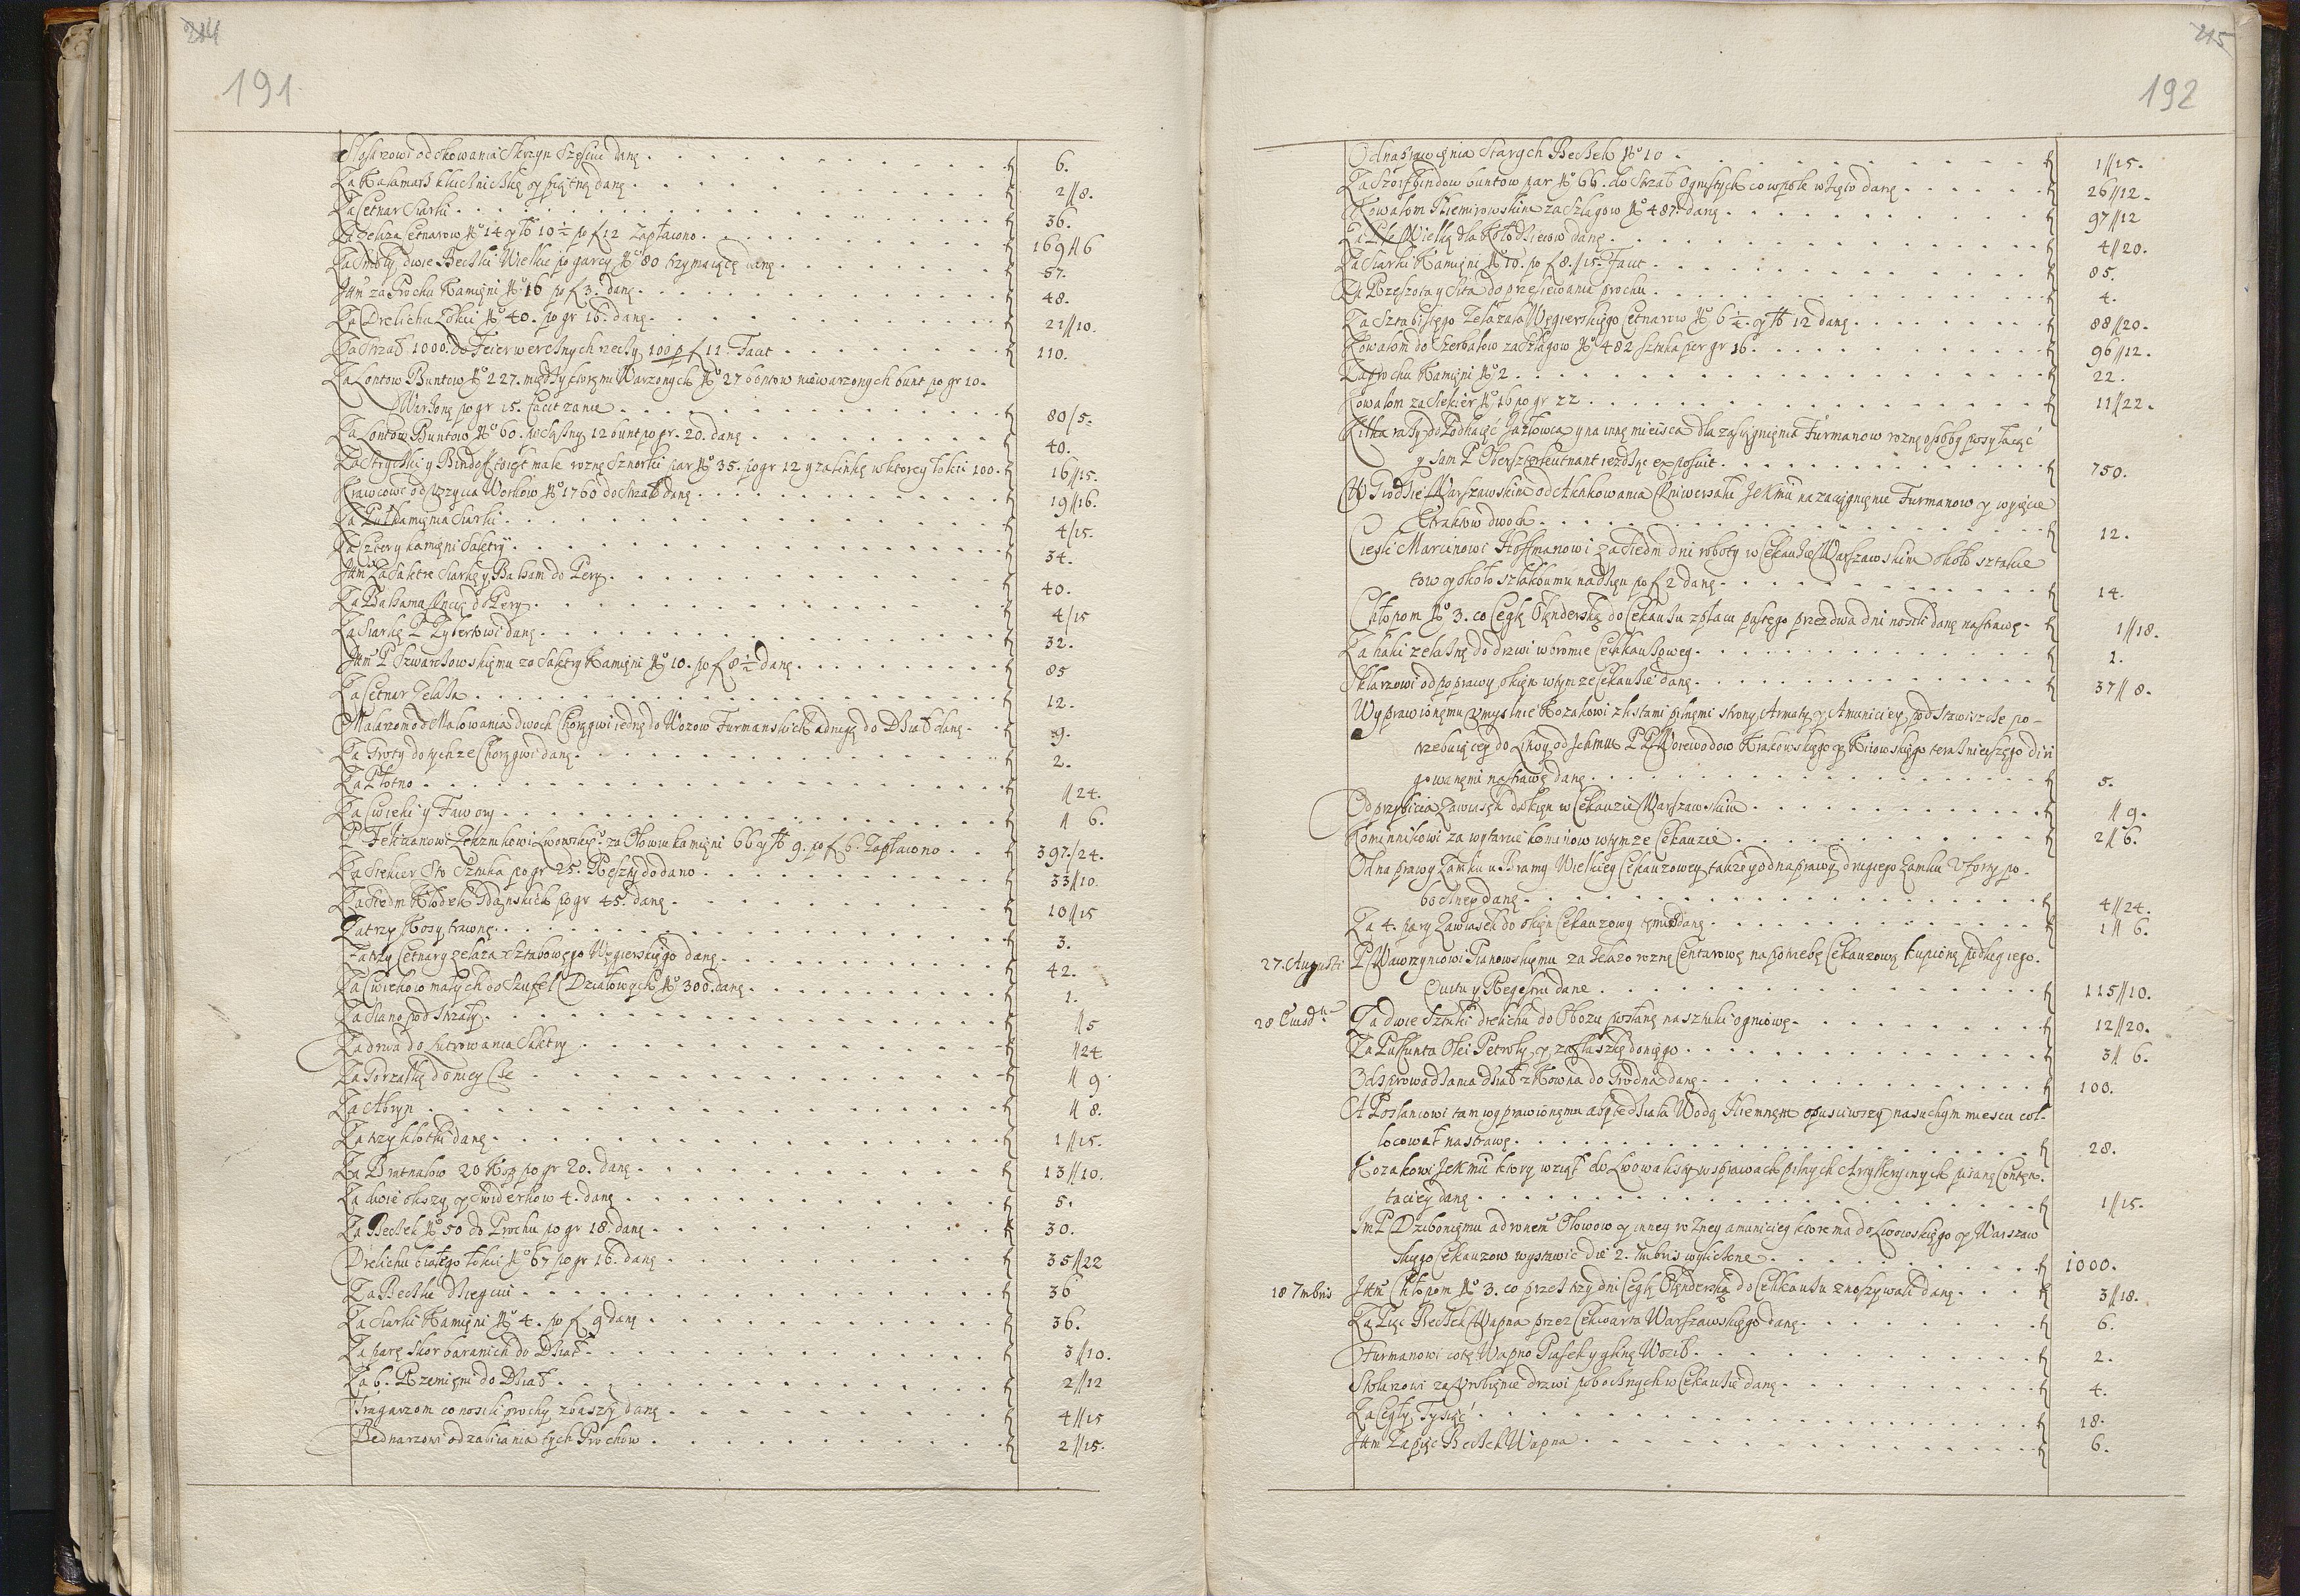 214
191
Slosarzowi od okowania Skrzyn Szesciu danę . f 6.
Za Kalamarz danę . f 2//8.
Za Cetnar Siarki . f 36.
Za Zelaza Cetnarow No 14 y ℔ 10 ½ po f 12 Zapłacono . f 169//6
Za Smoły dwie Beczki Wielkie po garcy No 80 trzymaiące danę . f 57.
Ittm za Prochu Kamięni No 16 po f 3. danę . f 48.
Za Drelichu Łokci No 40. po gr 16. danę . f 21//10.
Za Strzał 1000. do Feierwercznych rzeczy 100 p f 11. Facit . f 110.
Za Lontow Buntow No 227. między ktoremi Warzonych No 27 bontow niewarzonych bunt po gr 10.
Warzone po gr 15. facit za nie . f 80/5.
Za Lontow Buntow No 60. 12 bunt po gr. 20. danę . f 40.
Za Strychki y Bindof małe rozne Sznorki par No 35. po gr 12 y za linkę w ktorey łokci 100. f 16//15.
Krawcowi od szycia Workow No 1760 do Strzał danę . f 19//16.
Za Puł kamięnia Siarki . f 4/15.
Za Cztery kamięni Saletry . f 34.
Ittm Za Saletrę Siarkę y Balsam do Pery . f 40.
Za Balsamu do Pery . f 4/15
Za Siarkę P Rybertowi danę . f 32.
Ittm P Szwarckowskięmu za Saletry Kamięni No 10. po f 8½ danę . f 85
Za Cetnar Zelaza . f 12.
Malarzom od Malowania dwoch Choręgwi iednę do Wozow Furmanskich a drugę do Dział danę . f 9.
Za Groty do tychze Choręgwi danę . f 2.
Za Płotno . f //24.
Za Cwieki y Faworę . f // 6.
P Felizianowi Zelaznikowi Lwowskięu za Ołowiu kamięni 66 y ℔ 9. po f 6. Zapłacono . f 397./24.
Za Siekier Sto Sztuka po gr 25. Resztę dodano . f 33//10.
Za Siedm Kłodek Gdanskich po gr 45. danę . f 10//15
Za trzy Kosy trawnę . f 3.
Za trzy Cetnary zelaza sztabowego Węgierskiego danę . f 42.
Za Cwiekow małych do Szufel Działowych No 300. danę . f 1.
Za Siano pod Strzały . f //5
Za drwa do lutrowania Saletry . f //24
Za Gorzałkę do niey . f // 9
Za Abryn . f // 8.
Za trzy kłotki danę . f 1//15.
Za Bratnalow 20 Kop po gr 20. danę . f 13//10.
Za dwie okszy y Swiderkow 4. danę . f 5.
Za Beczek No 50 do Prochu po gr 18. danę . f 30.
Drelichu białego łokci No 67 po gr 16. danę . f 35//22
Za Beczkę dziegciu . f 36
Za Siarki Kamięni No 4. po f 9 danę . f 36.
Za parę Skor baranich do Dział . f 3//10.
Za 6. Rzemięni do Dział . f 2//12
Tragarzom co nosili prochy z baszty danę . f 4//15
Bednarzowi od zabiiania tych Prochow . f 2//15.
215
192
Od naprawięnia Starych Beczek No 10 . f 1//15.
Za Szpifbindow buntow par No 66. do Strzał Ognistych co w pole wzięto danę . f 26//12.
Kowalom Niemirowskim za Szlagow No 487. danę . f 97//12
Za Wielkę dla Kołodzieiow danę . f 4//20.
Za Siarki Kamięni No 10. po f 8.//15. Facit . f 85.
Za Rzeszota y Sita do przesiewania prochu . f 4.
Za Sztabistego Zelaza Węgierskiego Cetnarow No 6¼. y ℔ 12 danę . f 88//20.
Kowalom do Szerbatow za Szlagow No 482 sztuka per gr 16 . f 96//12.
Za prochu Kamięni No 2 . f 22.
Kowalom za Siekier No 16 po gr 22 . f 11//22.
Kilka razy do Podhaięc Jazłowca y na innę mieisca dla zaciągnięnia Furmanow roznę osoby posyłaiąc
y sam P Obersztleutnant iezdząc exposuit . f 750.
W Grodzie Warszawskim od Uniwersału JeKMci na zaciągnięnie Furmanow y wyięcie
Extraktow dwoch . f 12.
Ciesli Marcinowi Hoffmanowi za siedm dni roboty w Cekauzie Warszawskim około sztakie
tow y około szlakbumu na dzięn po f 2 danę . f 14.
Chłopom No 3. co Cegłę Olęnderską do Cekauzu z placu pustego przez dwa dni nosili danę na strawę . f 1//18.
Za haki zelaznę do drzwi w bromie Cekauzoweg . f 1.
Sklarzowi od poprawy okięn w tymze Cekauzie danę . f 37// 8.
Wyprawionęmu Umyslnie Kozakowi z listami pilnęmi strony Armaty y Amuniciey pod Stawiszcze po-
trzebuiącey do Litwy od Jchmu PP Woiewodow Krakowskięgo y Kiiowskięgo teraznieiszęgo diri
gowanęmi na strawę danę . f 5.
Od przybicia Zawiasek do okięn w Cekauzie Warszawskim . f // 9.
Kominnikowi za wytarcie kominow w tymze Cekauzie . f 2// 6.
Od naprawy Zamku u Bramy Wielkiey Cekauzowey także y od naprawy drugiego Zamku U forty po-
boczney danę . f 4//24.
Za 4. pary Zawiasek do okięn Cekauzowych danę . f 1// 6.
27. Augusti P Wawrzyncowi Pianowskięmu za zelazo roznę Centarowe na potrzebę Cekauzowę kupionę podług iego
Quitu y Regestru dane . f 115//10.
28 Eiusdem Za dwie Sztuki drelichu do Obozu posłanę na sztuki ogniowę . f 12//20.
Za Puł funta Olei Petroly y za flaszkę do nięgo . f 3// 6.
Od sprowadzania dział z Kowna do Grodna danę . f 100.
A Posłancowi tam wyprawionęmu aby ie działa Wodą Niemnęm spusciwszy na suchym miescu col-
locował na strawę . f 28.
Kozakowi JeKMci ktory wziął do Lwowa listy w sprawach pilnych Artylleryinych pisanę Contęn-
taciey danę . f 1//15.
JmP Dzibonięmu ad ronem Ołowow y inney rozney amuniciey ktore ma do Lwowskięgo y Warszaw
skięgo Cekauzow wystawic die 2. 7mbris wyliczone . f 1000.
18 7mbris Ittm Chłopom No 3. co przez trzy dni Cegłę Olęnderską do Cekkauzu znoszywali danę . f 3//18.
Za Pięc Beczek Wapna przez Cekwarta Warszawskięgo danę . f 6.
Furmanowi co tę Wapno Piasek y glinę Woził . f 2.
Stolarzowi za Urobięnie drzwi pobocznych w Cekauzie danę . f 4.
Za Cegły Tysiąc . f 18.
Ittm Za pięc Beczek Wapna . f 6.